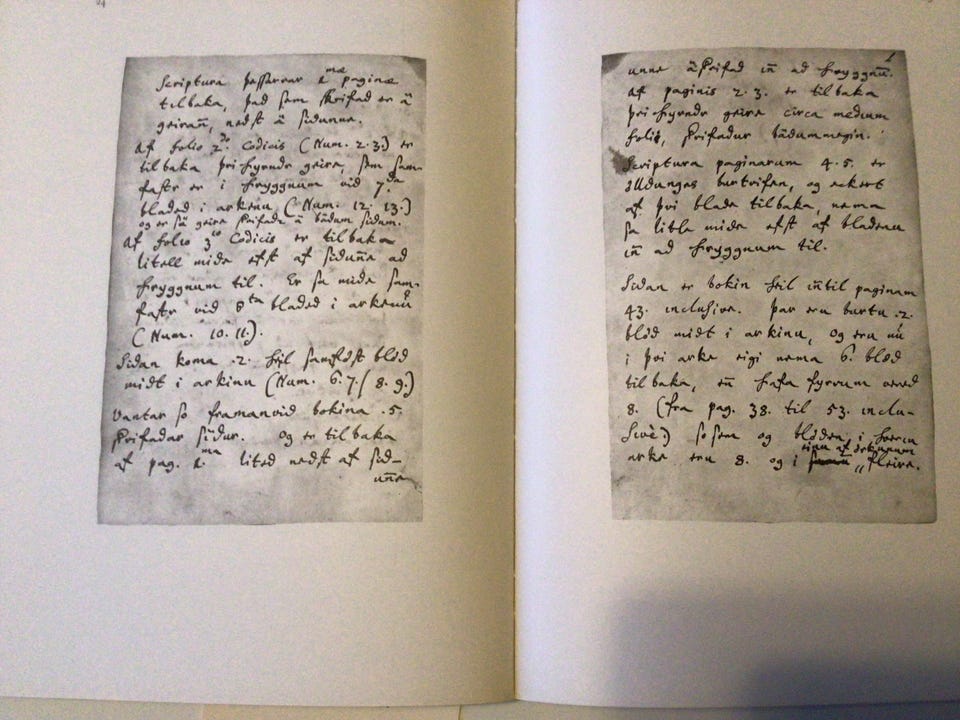 Scriptura þessarar 1mæ paginæ
tilbaka, það sem skrifad er ä
geirann, nedst ä sidunne.
Af folio 2do Codicis (Num. 2.3.) er
tilbaka þrihyrndr geire, sem sam-
fastr er i hryggnum vid 7da
bladed i arkenu (Num. 12. 13.)
og er sä geire skrifadr ä bädum sidum.
Af folio 3io Codicis er tilbaka
litell mide efst af sidunne ad
hryggnum til. Er sa mide sam-
fastr vid 8da bladed i arkenu
(Num. 10. 11.).
Sidan koma .2. heil samföst blöd
midt i arkinu (Num. 6.7./8.9.)
Vantar so framanvid bokina .5.
skrifadar sidur. Og er tilbaka
af pag. 1ma lited nedst af sid-
unne
1
unne äskrifad inn ad hryggnum.
Af paginis 2.3. er tilbaka
þrihyrndr geire circa medium
folii, skrifadur bädummegin.
Scriptura paginarum 4.5. er
alldungis burtrifen, og eckert
af þvi blade tilbaka, nema
sa litle mide efst af bladenu
inn ad hryggnum til.
Sidan er bokin heil inntil paginam
43. inclusive. Þar eru burtu .2.
blöd midt i arkinu, og eru nu
i þvi arke eigi nema 6 blöd
tilbaka, enn hafa fyrrum vered
8. (fra pag. 38. til 53. inclu-
sivè.) so sem og blöden i hveriu
arke eru 8. og i einu af örkunum fleire.